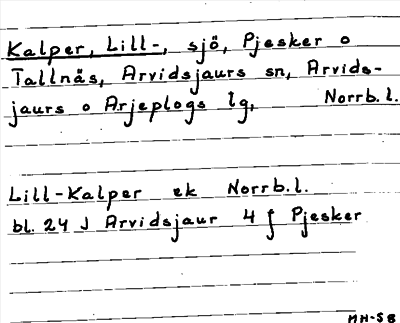 Kalper, Lill-, sjö, Pjesker o
Tallnäs, Arvidsjaurs sn, Arvids-
jaurs o Arjeplogs lg, Norrb. l.
Lill-Kalper ek Norrb. l.
bl. 24 J Arvidsjaur 4 f Pjesker
MH-SB